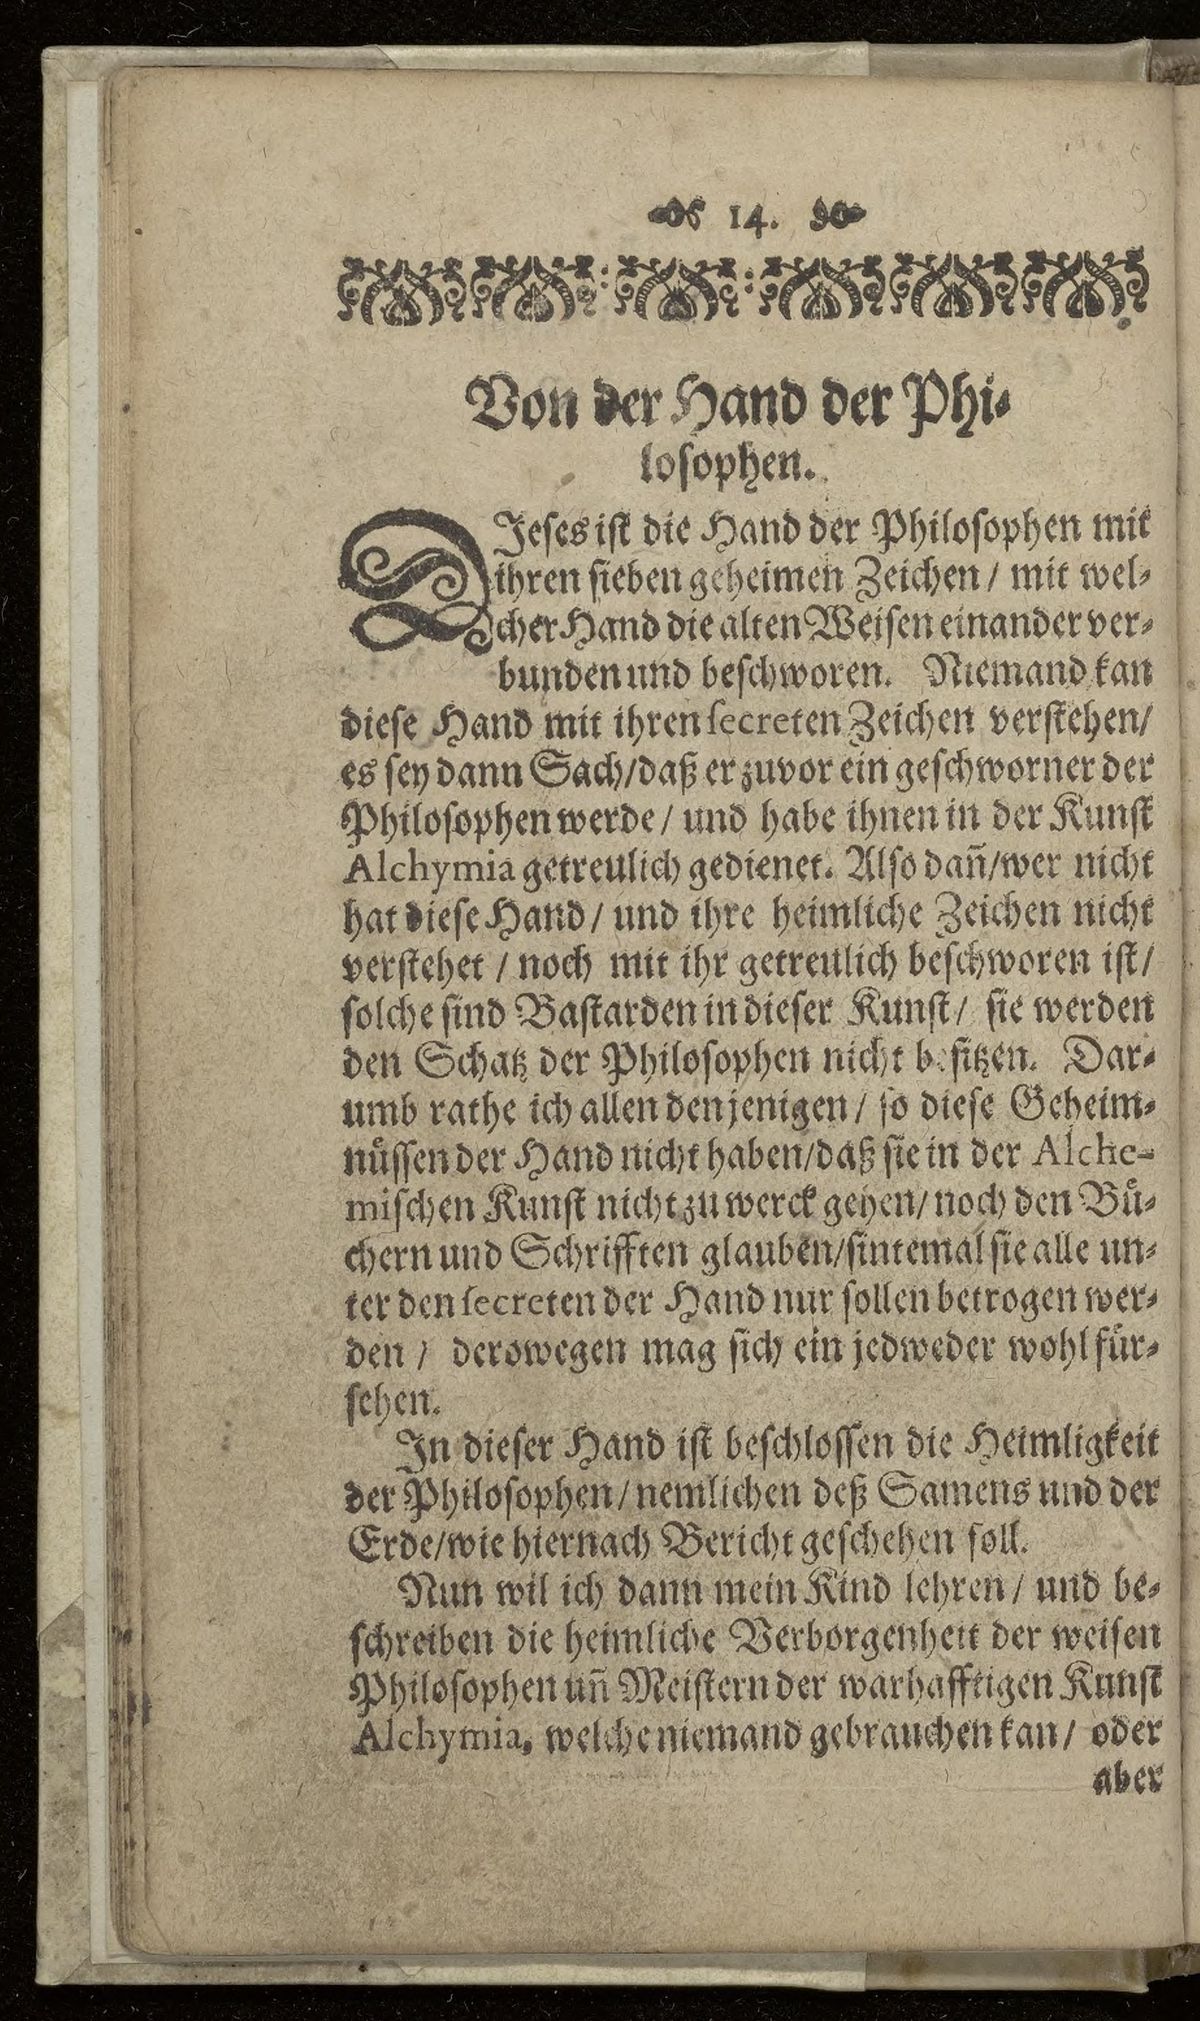 14.
Von der Hand der Phi-
losophen.
DIeses ist die Hand der Philosophen mit
ihren sieben geheimen Zeichen / mit wel-
cher Hand die alten Weisen einander ver-
bunden und beschworen. Niemand kan
diese Hand mit ihren secreten Zeichen verstehen/
es sey dann Sach/daß er zuvor ein geschworner der
Philosophen werde / und habe ihnen in der Kunst
Alchymia getreulich gedienet. Also dañ/wer nicht
hat diese Hand / und ihre heimliche Zeichen nicht
verstehet / noch mit ihr getreulich beschworen ist/
solche sind Bastarden in dieser Kunst / sie werden
den Schatz der Philosophen nicht besitzen. Dar-
umb rathe ich allen denjenigen / so diese Geheim-
nüssen der Hand nicht haben/daß sie in der Alche-
mischen Kunst nicht zu werck gehen/noch den Bü-
chern und Schrifften glauben/sintemal sie alle un-
ter den secreten der Hand nur sollen betrogen wer-
den / derowegen mag sich ein jedweder wohl für-
sehen.
In dieser Hand ist beschlossen die Heimligkeit
der Philosophen/nemlichen deß Samens und der
Erde/wie hiernach Bericht geschehen soll.
Nun wil ich dann mein Kind lehren / und be-
schreiben die heimliche Verborgenheit der weisen
Philosophen uñ Meistern der warhafftigen Kunst
Alchymia, welche niemand gebrauchen kan / oder
aber